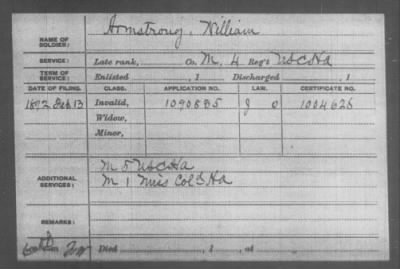 NAME OF SOLDIER: Armstrong, William
SERVICE: Late rank, Co. M, 4 Reg't U S C H A
TERM OF SERVICE: Enlisted , 1 Discharged , 1
DATE OF FILING. CLASS. APPLICATION NO. LAW. CERTIFICATE NO.
1892 Feb 13 Invalid, 1090835 J O 1004626
Widow,
Minor,
ADDITIONAL SERVICES: M 5 U S C H A
M 1 Miss Col'd H A
REMARKS:
Died , 1 , at